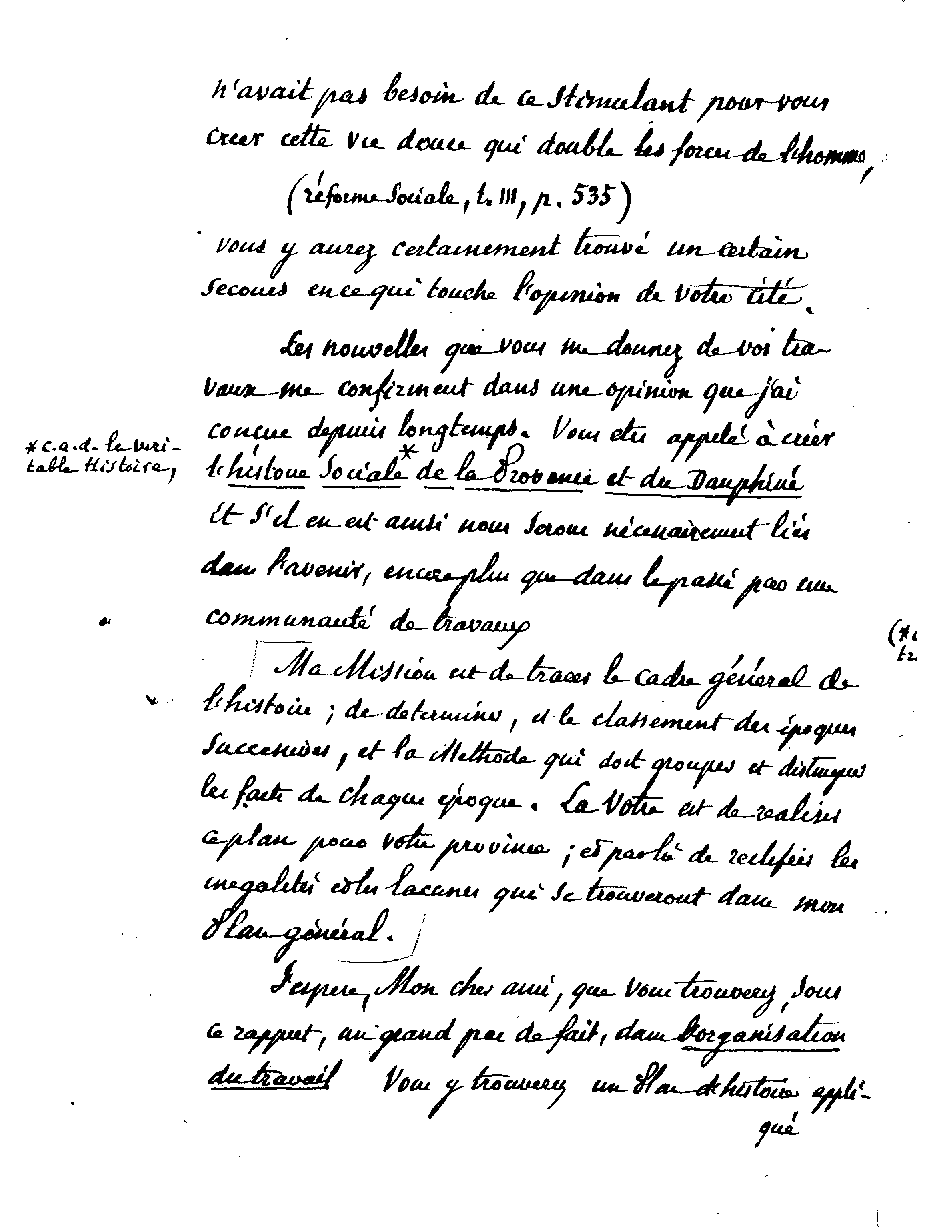 n'avait pas besoin de ce stimulant pour vous
créer cette vie douce qui double les forces de l'homme,
(réforme Sociale, t. III, p. 535)
vous y aurez certainement trouvé un certain
secours en ce qui touche l'opinion de votre cité.
Les nouvelles que vous me donnez de vos tra-
vaux me confirment dans une opinion que j'ai
conçue depuis longtemps. Vous êtes appelé à créer
* c.a.d. la véri-
table Histoire,
l'histoire Sociale* de la Provence et du Dauphiné
Et s'il en est ainsi nous serons nécessairement liés
dans l'avenir, encore plus que dans le passé par une
communauté de travaux
Ma Mission est de tracer le cadre général de
l'histoire ; de déterminer, et le classement des époques
successives, et la Méthode qui doit grouper et distinguer
les faits de chaque époque. La Votre est de réaliser
ce plan pour votre province ; et par là de rectifier les
inégalités et les lacunes qui se trouveront dans mon
Plan général.
J'espère, Mon cher ami, que vous trouverez, sous
ce rapport, un grand pas de fait, dans l'organisation
du travail Vous y trouverez un Plan d'histoire appli-
qué